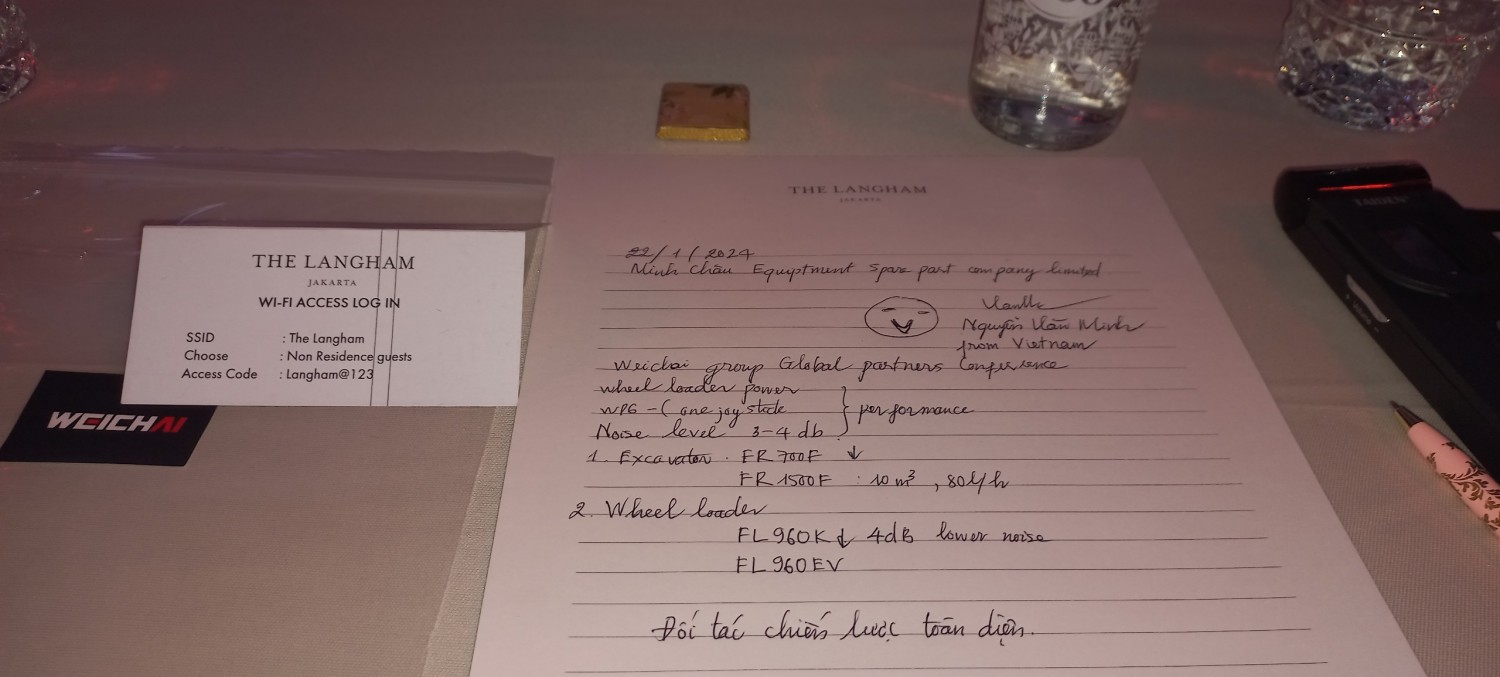 THE LANGHAM
JAKARTA
WI-FI ACCESS LOG IN
SSID : The Langham
Choose : Non Residence guests
Access Code : Langham@123
WEICHAI
THE LANGHAM
JAKARTA
22/1/2024
Minh Châu Equyptment spare part company limited
Nguyễn Văn Minh
from Vietnam
Weichai group Global partners Conference
wheel loader power
WPG - ( one joy stick
Noise level 3-4 db
} performance
1. Excavator . FR 700F ↓
FR 1500F : 10 m³ , 80 l/h
2. Wheel loader
FL 960K ↓ 4dB lower noise
FL 960EV
Đối tác chiến lược toàn diện.